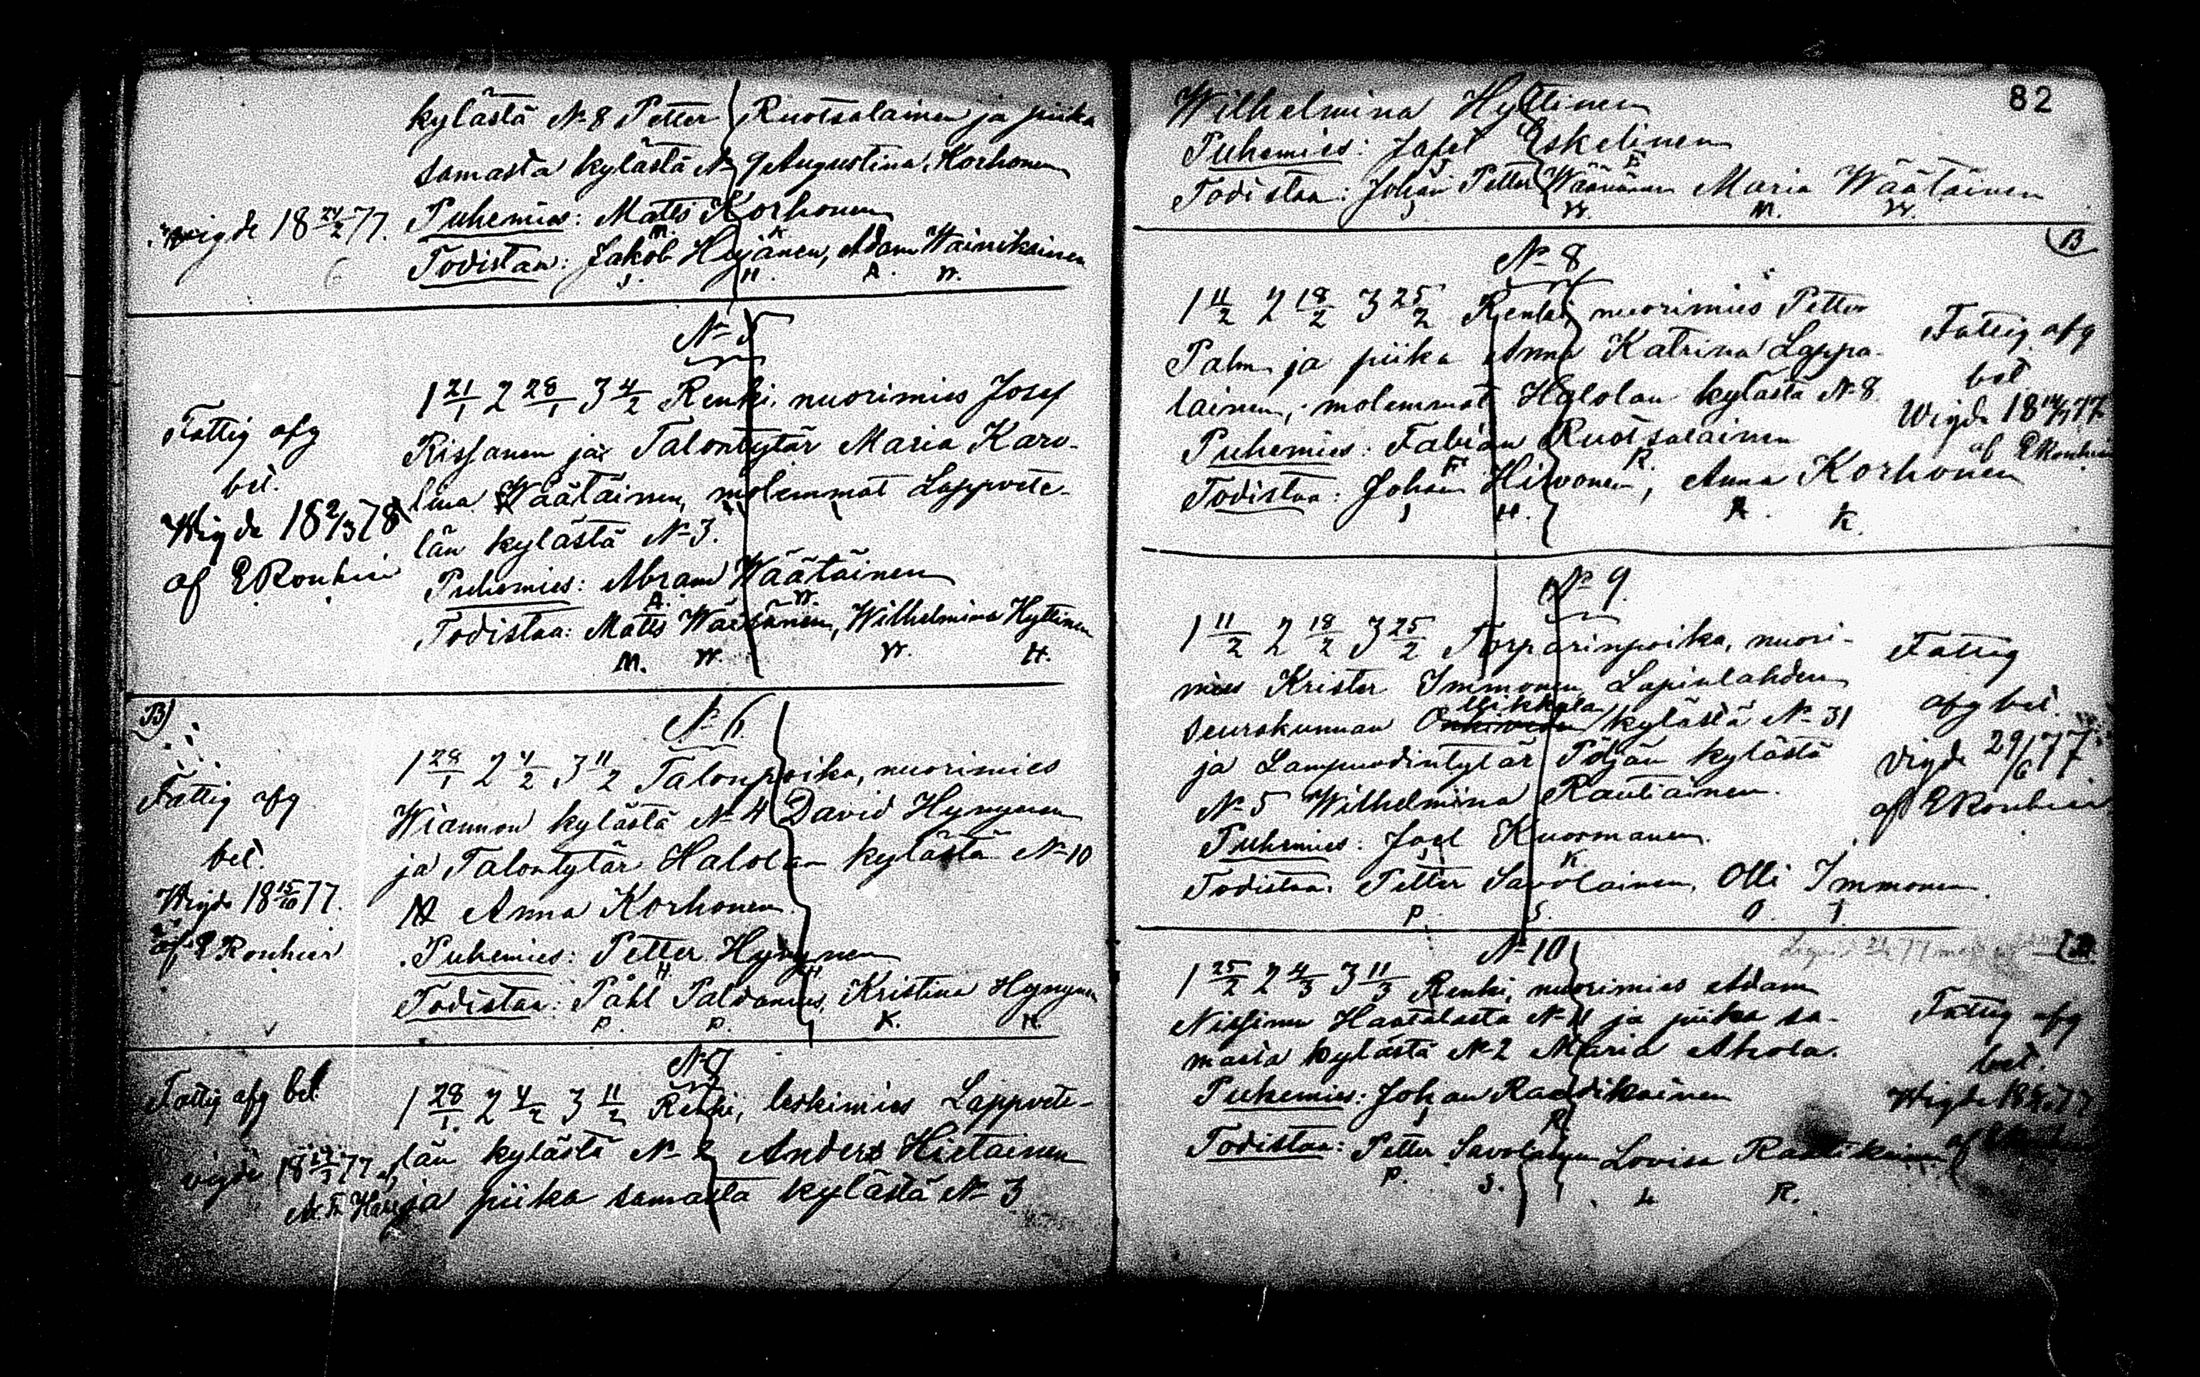 kylästä No 8 Petter Ruotsalainen ja piika
samasta kylästä No 9 Augustina Korhonen
Wigde 18 24/2 77.
Puhemies: Matts Korhonen
M. K.
Todistaa: Jakob Heijänen, Adam Wainikainen
J. H. A. W.
No 5
1 21/1 2 28/1 3 4/2 Renki, nuorimies Josef
Rissanen ja Talontytär Maria Karo-
lina Wäätäinen, molemmat Lappvete-
län kylästä No 3.
Puhemies: Abram Wäätäinen
A. W.
Todistaa: Matts Wäisänen, Wilhelmina Hyttinen
M. W. W. H.
Fattig afg
bet.
Wigde 18 2/3 78
af E Ronhin
B
No 6
1 28/1 2 4/2 3 11/2 Talonpoika, nuorimies
Wiannon kylästä No 4 David Hynynen
ja Talontytär Halolan kylästä No 10
Anna Korhonen
Puhemies: Petter Hynynen
H H
Todistaa: Påhl Paldanius, Kristina Hynynen
P. P. K. H.
Fattig afg
bet.
Wigde 18 15/10 77.
af E Ronhin
No 7
1 28/1 2 4/2 3 11/2 Renki, leskimies Lappvete-
län kylästä No 2 Anders Hietainen
ja piika samasta kylästä No 3
Fattig afg bet
vigde 18 77 af
82
Wilhelmina Hyttinen
Puhemies: Josef Eskelinen
J E
Todistaa: Johan Petter Wäänänen Maria Wäätäinen
J W. M. W.
B
No 8
1 11/2 2 18/2 3 25/2 Renki, nuorimies Petter
Palm ja piika Anna Katrina Lappa-
lainen, molemmat Halolan kylästä No 8.
Puhemies: Fabian Ruotsalainen
F R.
Todistaa: Johan Hiwonen, Anna Korhonen
J H. A. K.
Fattig afg
bet
Wigde 18 77
af E Ronhin
No 9.
1 11/2 2 18/2 3 25/2 Torparinpoika, nuori-
mies Krister Immonen Lapinlahden
seurakunnan kylästä No 31
ja Lampuodintytär Pöljän kylästä
No 5 Wilhelmina Rautiainen.
Puhemies: Joel Kuosmanen
J K
Todistaa: Petter Savolainen, Olli Immonen.
P. S. O. I
Fattig
afg bet.
Vigde 29/6 77
af E Ronhin
No 10
1 25/2 2 4/3 3 11/3 Renki, nuorimies Adam
Nissinen Haatalasta No 11 ja piika sa-
masta kylästä No 2 Maria Ahola.
Puhemies: Johan Raatikainen
J R
Todistaa: Petter Savolainen Lovisa Raatikainen
P. S. L R.
Fattig afg
bet.
Wigde 18 77
af